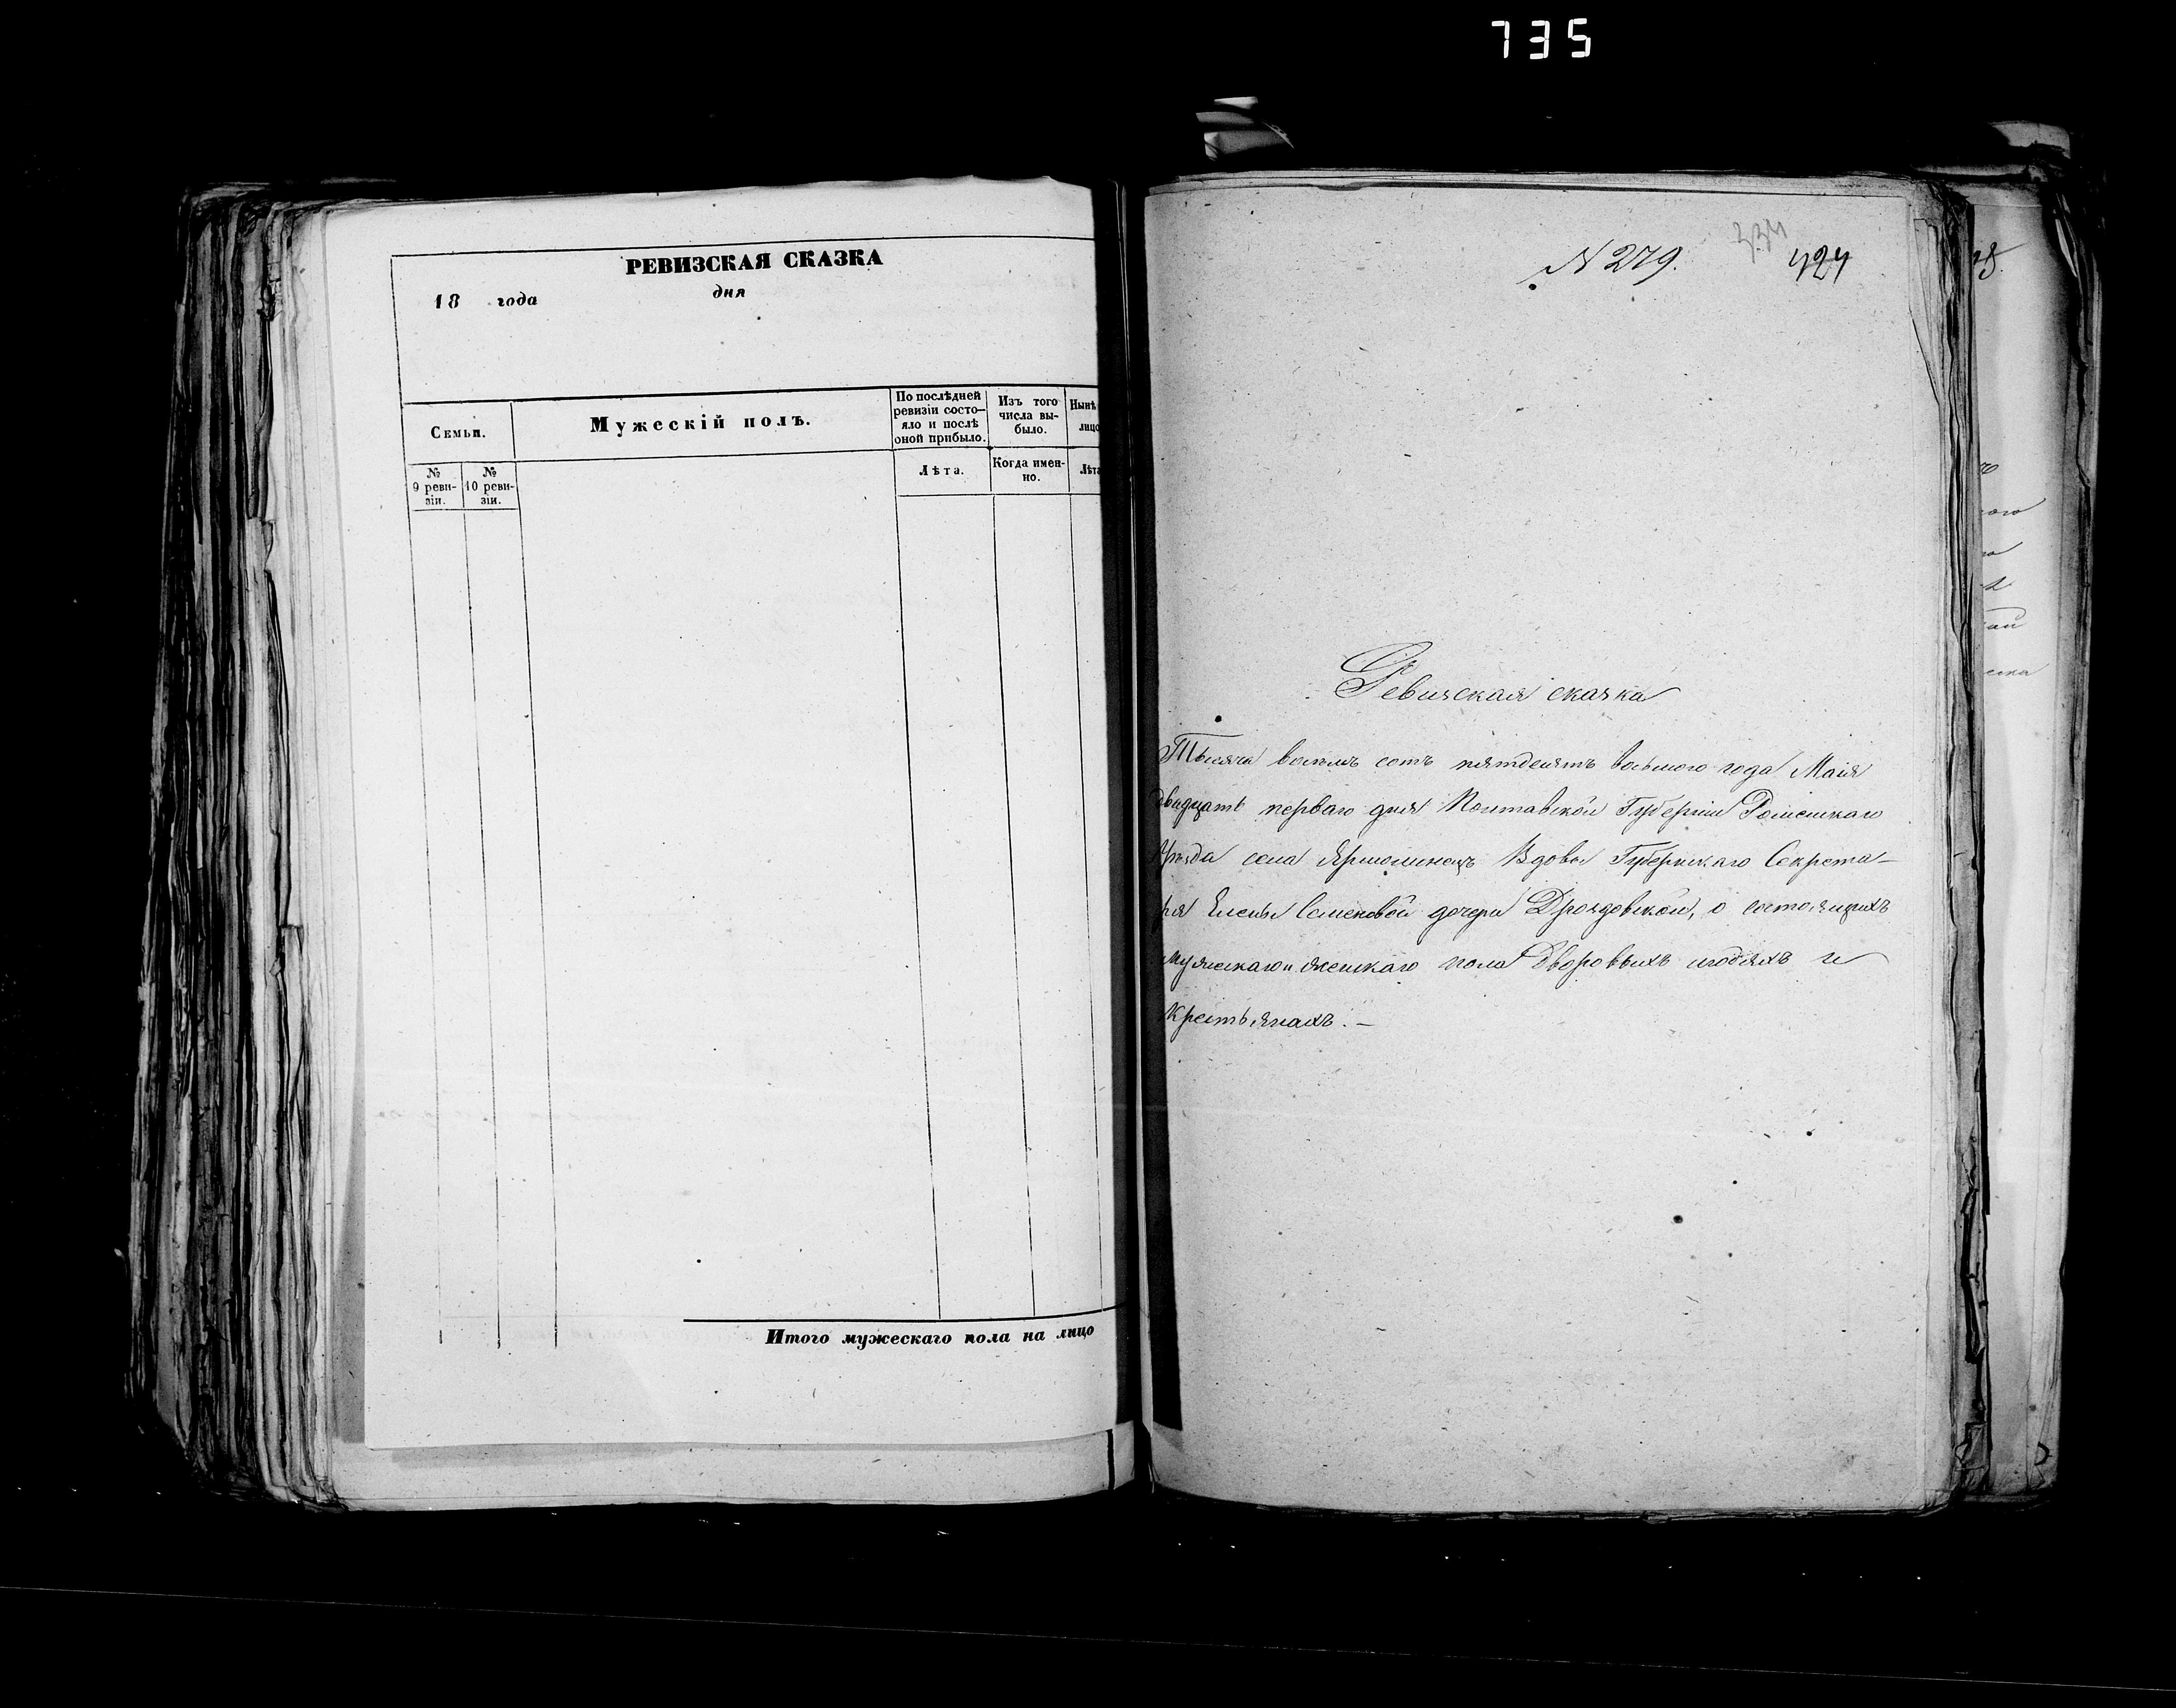 735
РЕВИЗСКАЯ СКАЗКА
18 года дня
Семьи.
Мужескій полъ.
По послѣдней
ревизіи состо-
яло и послѣ
оной прибыло.
Изъ того
числа вы-
было.
Нынѣ
лицо
№
9 реви-
зіи.
№
10 реви-
зіи.
Лѣта.
Когда имен-
но.
Лѣта
Итого мужескаго пола на лицо
N 279.
334
424
Ревизская сказка
Тысяча восемь сотъ пятдесятъ восьмого года Маія
двадцать перваго дня Полтавской Губерніи Роменскаго
Уѣзда села Ярмолинецъ Вдовы Губернскаго Секрета-
ря Елены Семеновой дочери Дроздовской, о состоящихъ
мужескаго и женскаго пола Дворовыхъ людяхъ и
Крестьянахъ. –